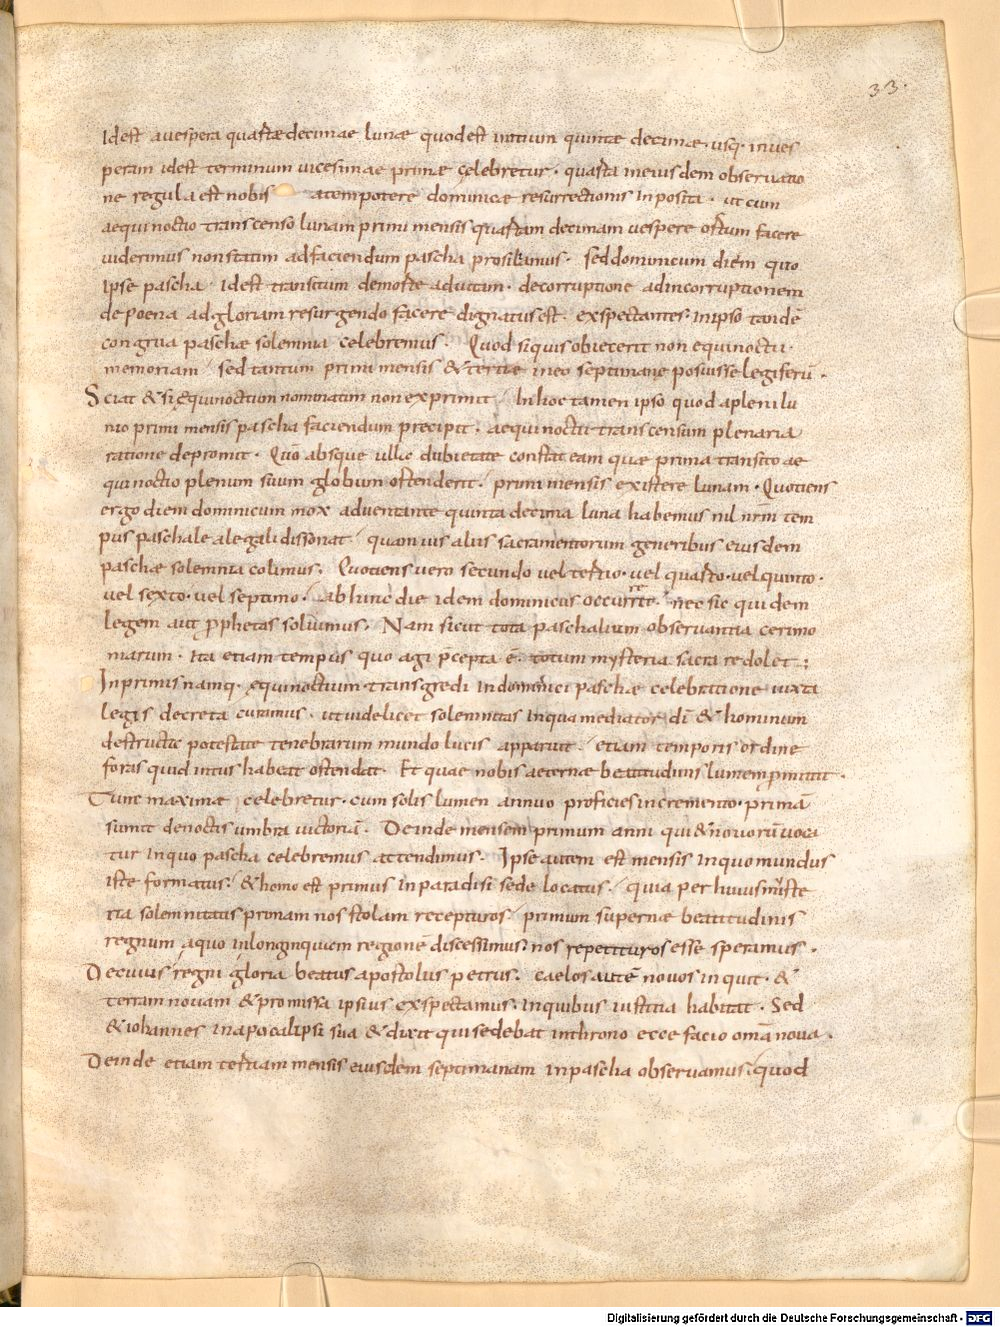 33.
Idest auespera quartae decimae lunae quodest initium quintae decimae. usq. inues
peram idest terminum uicesimae primae celebretur. quarta ineiusdem obseruatio
ne regula est nobis a tempotere dominicae resurrectionis inposita. ut cum
aequinoctio transcenso lunam primi mensis quartam decimam uespere ortum facere
uiderimus nonstatim adfaciendum pascha prosiliamus. seddominicum diem quo
Ipse pascha idest transitum demorte aduitam. decorruptione adincorruptionem
de poena adgloriam resurgendo facere dignatus est. exspectantes. Inipso tandē
congrua paschae solemnia celebremus. Quod siquis obiecerit non equinoctii.
memoriam sed tantum primi mensis & tertiae ineo septimanae posuisse legiferū.
Sciat & si ęquinoctium nominatim non exprimit. In hoc tamen ipso quod aplenilu
nio primi mensis pascha faciendum precipit. aequinoctii transcensum plenaria
ratione depromit. Quō absque ullae dubietate constat eam quae prima transito ae
quinoctio plenum suum globum ostenderit. primi mensis existere lunam. Quotiens
ergo diem dominicum mox aduentante quinta decima luna habemus nil nr̄m tem
pus paschale alegali dissonat. quamuis aliis sacramentorum generibus eiusdem
paschae solemnia colimus. Quotiens uero secundo uel tertio. uel quarto. uel quinto.
uel sexto. uel septimo. ab hinc die idem dominicus occurrerit. nec sic quidem
legem aut p̱rophetas soluimus. Nam sicut tota paschalium obseruantia cerimo
niarum. ita etiam tempus quo agi p̄cepta ē. totum mysteria sacra redolet.;
Inprimis namq. ęquinoctium transgredi indominici paschae celebratione iuxta
legis decreta curamus. utuidelicet solemnitas inqua mediator dī & hominum
destructa potestate tenebrarum mundo lucis apparuit. etiam temporis ordine
foras quid intus habeat ostendat. Et quae nobis aeternae beatitudinis lumen p̱mittit.
Tunc maximae celebretur. cum solis lumen annuo proficiesincremento. primā
sumit denoctis umbra uictoriā. Deinde mensem primum anni qui & nouorū uoca
tur inquo pascha celebremus attendimus. Ipse autem est mensis inquo mundus
iste formatus. & homo est primus inparadisi sede locatus. quia per huius myste
ria solemnitatis primam nos stolam recepturos. primum supernae beatitudinis
regnum aquo inlonginquiem regionē discessimus. nos repetituros esse speramus.
Decuius regni gloria beatus apostolus petrus. caelos autē nouos inquit. &
terram nouam & promissa ipsius exspectamus. inquibus iustitia habitat. Sed
& iohannes inapocalipsi sua & dixit qui sedebat inthrono ecce facio omā noua.
Deinde etiam tertiam mensis eiusdem septimanam inpascha obseruamus. quod
Digitalisierung gefördert durch die Deutsche Forschungsgemeinschaft - DFG